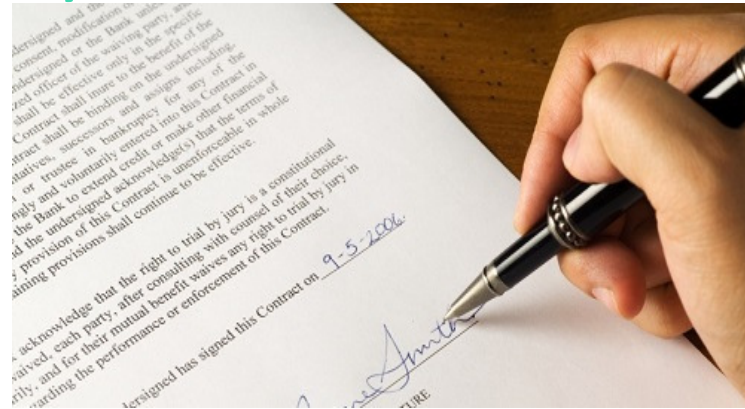 dersigned and the
consent, modification of
ndersigned or the Bank unless
zed officer of the waiving party, and
shall be effective only in the specific
Contract shall inure to the benefit of the
ntract shall be binding on the undersigned
ntatives, successors and assigns including,
l or trustee in bankruptcy for any of the
ngly and voluntarily entered into this Contract in
the Bank to extend credit or make other financial
d the undersigned acknowledge(s) that the terms of
y provision of this Contract is unenforceable in whole
aining provisions shall continue to be effective.
acknowledge that the right to trial by jury is a constitutional
vaived, each party, after consulting with counsel of their choice,
rily, and for their mutual benefit waives any right to trial by jury in
garding the performance or enforcement of this Contract.
dersigned has signed this Contract on 9-5-2006.
Smith
TURE